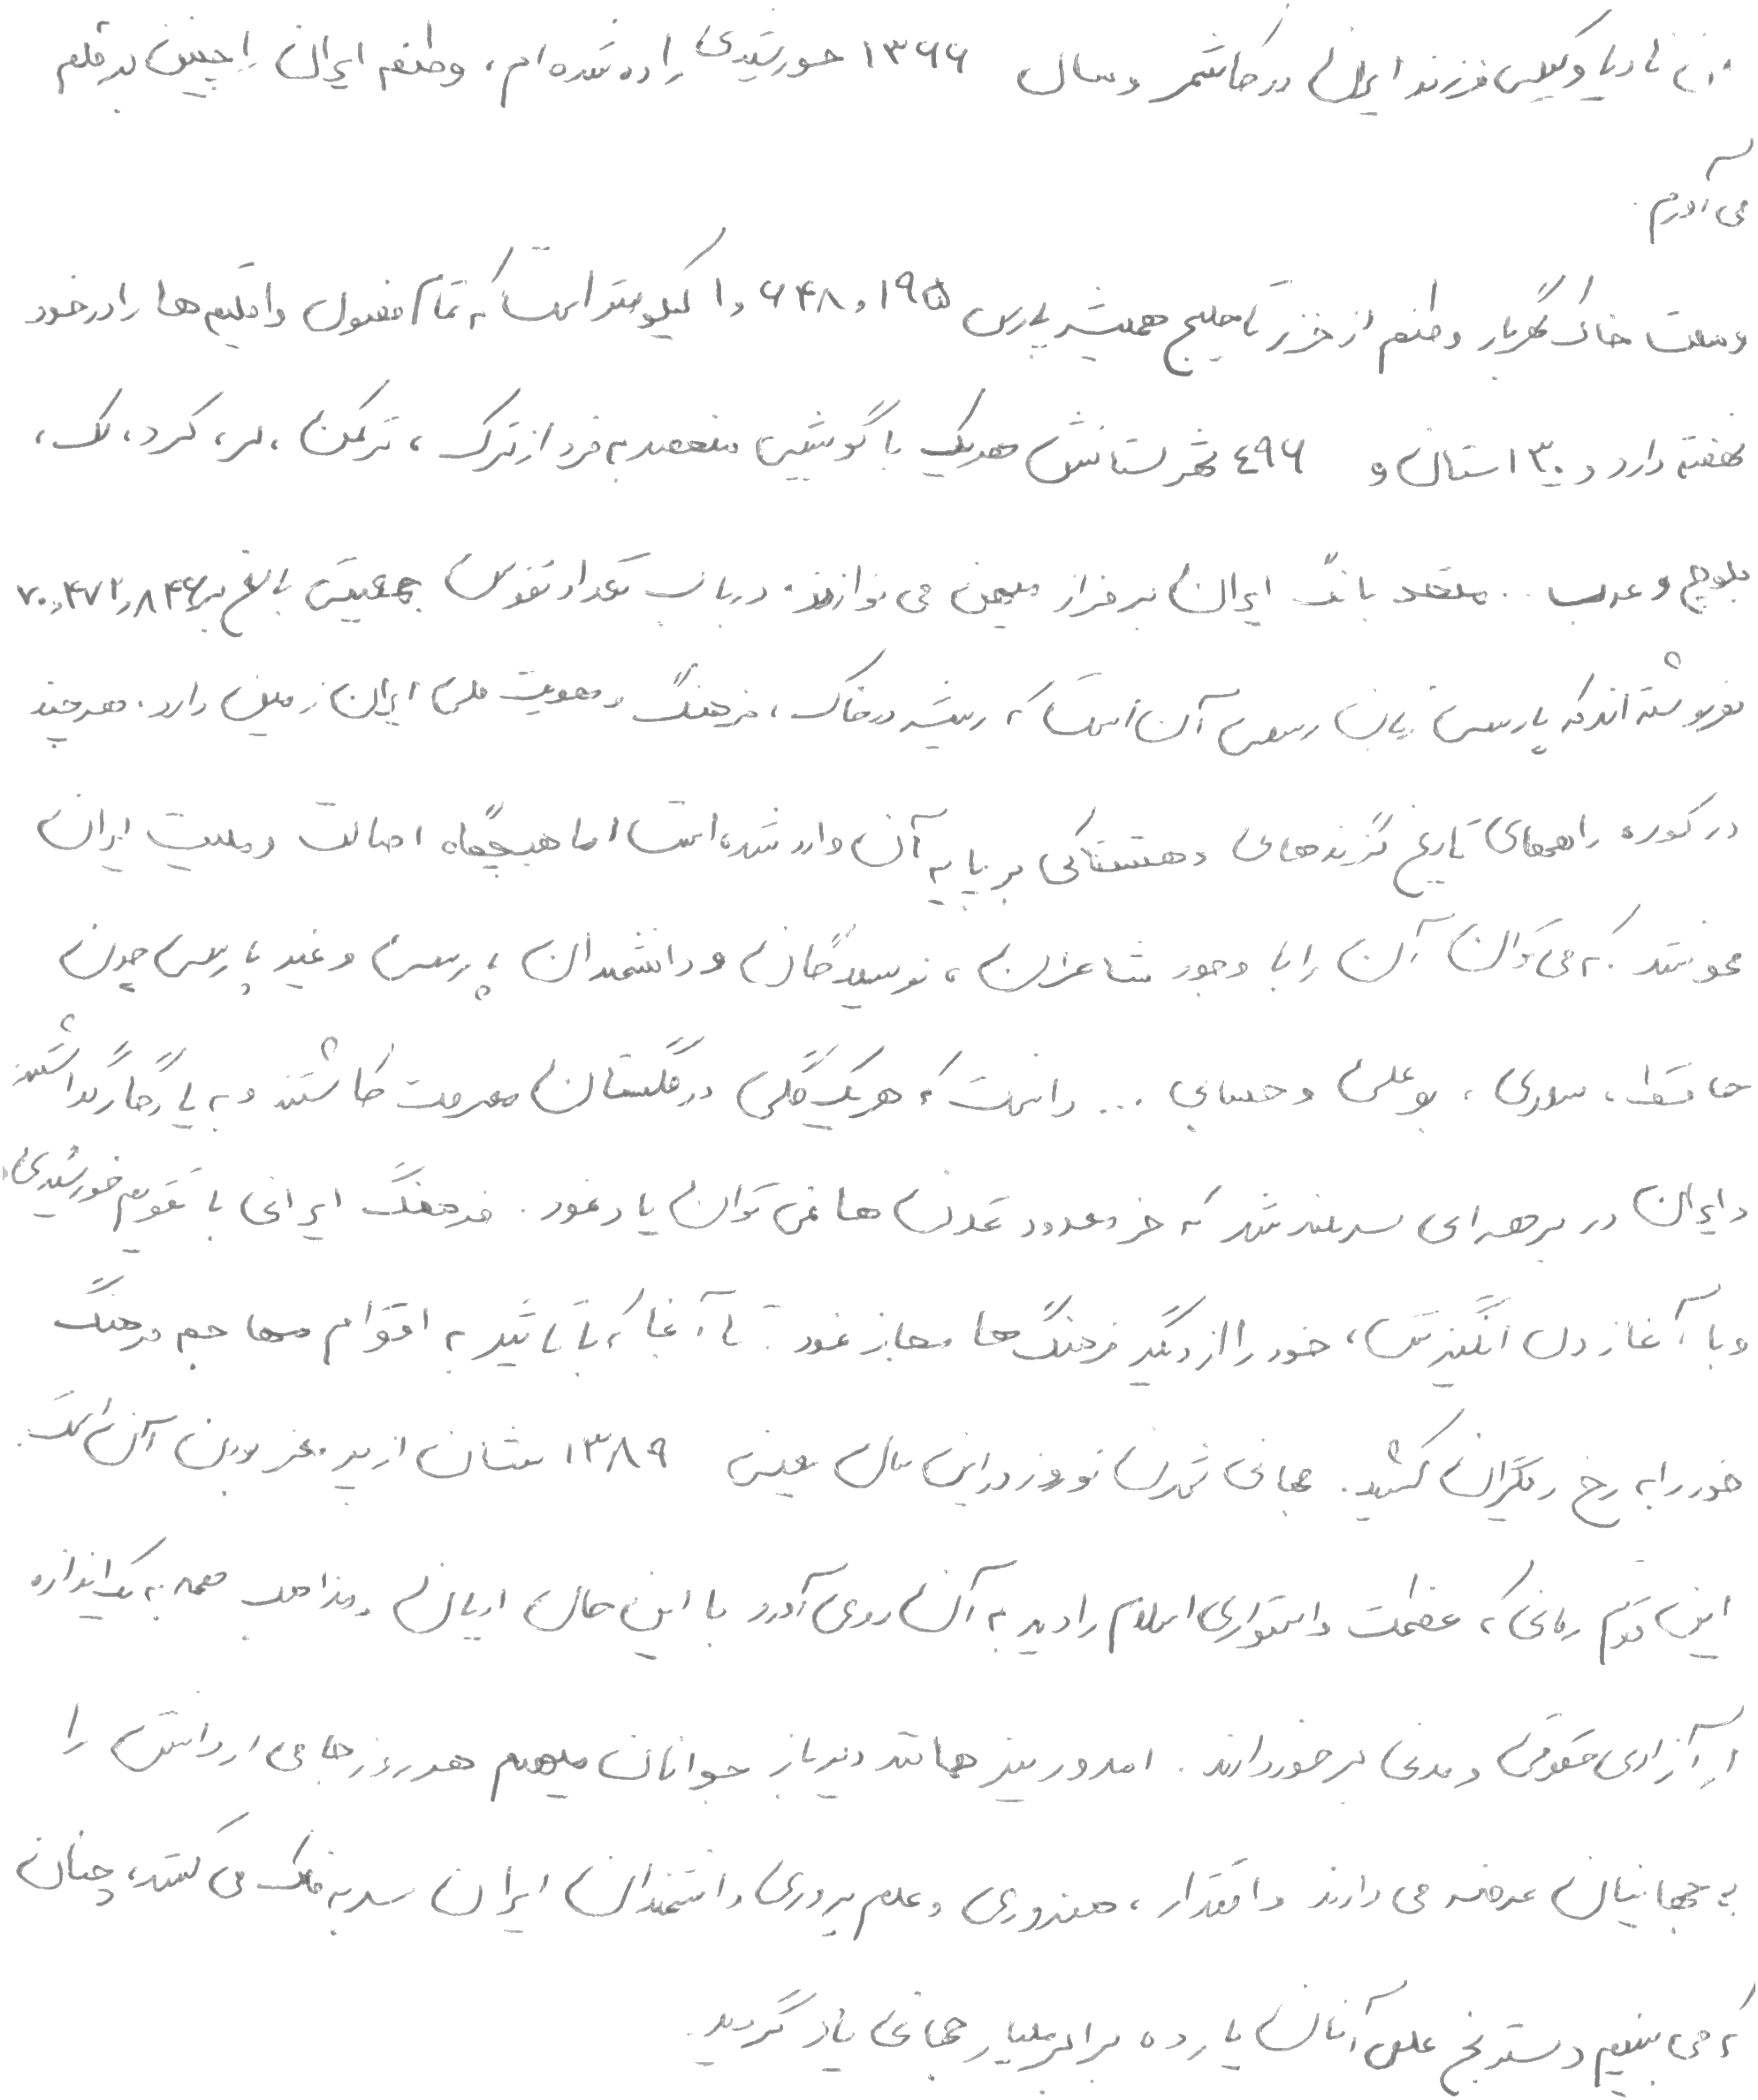 نادیا وکیلی فرزند ایران در کاشمر و سال ۱۳۶۶ خورشیدی زاده شده ام، وطنم ایران را چنین بر قلم
می آورم.
وسعت خاک گهربار وطنم از خزر تا خلیج همیشه پارس ۱,۶۴۸,۱۹۵ کیلومتر است که تمام فصول و اقلیم ها را در خود
نهفته دارد و ۳۰ استان و ۴۹۶ شهرستانش هریک با گویشی منحصر به فرد از ترک، ترکمن، لر، کرد، لک،
بلوچ و عرب .. متحد بانگ ایران بر فراز میهن می نوازند. در باب تعداد نفوس جمعیتش بالغ بر ۷۰,۴۷۲,۸۴۶
نفر نوشته اند که پارسی زبان رسمی آن است که ریشه در خاک، فرهنگ و هویت ملی ایران زمین دارد. هر چند
در کوره راههای تاریخ گزندهای دهشتناکی بر پایه آن وارد شده است اما هیچگاه اصالت و ملیت ایران
محو نشد که می توان آن را با وجود شاعران، نویسندگان و دانشمندان پارسی و غیر پارسی چون
حافظ، سعدی، بوعلی و حسابی ... دانست که هریک گلی در گلستان معرفت کاشتند و به یادگار گذاشتند
و ایران در برهه ای سربلند شد که جز معدود تمدن ها نمی توان یاد نمود. فرهنگ ایرانی با تقویم خورشیدی
و با آغاز دل انگیزش، خود را از دیگر فرهنگ ها مجاز نمود تا آنجا که با تاثیر به اقوام مهاجم فرهنگ
خود را به رخ دیگران کشید. جهانی شدن نوروز در این سال یعنی ۱۳۸۹ نشان از پر مغز بودن آن است.
این قوم زمانی که عظمت و استواری اسلام را دید به آن روی آورد با این حال ادیان و مذاهب همه به یک اندازه
از آزادی حقوقی و مدنی برخوردارند. امروز نیز همانند دیرباز جوانان میهنم هر روز جامی از دانش را
به جهانیان عرضه می دارند و اقتدار، هنروری و علم پروری دانشمندان ایران سر به فلک می کشد، چنان
که می بینیم دسترنج علمی آنان یازده برابر معیار جهانی یاد گردید.